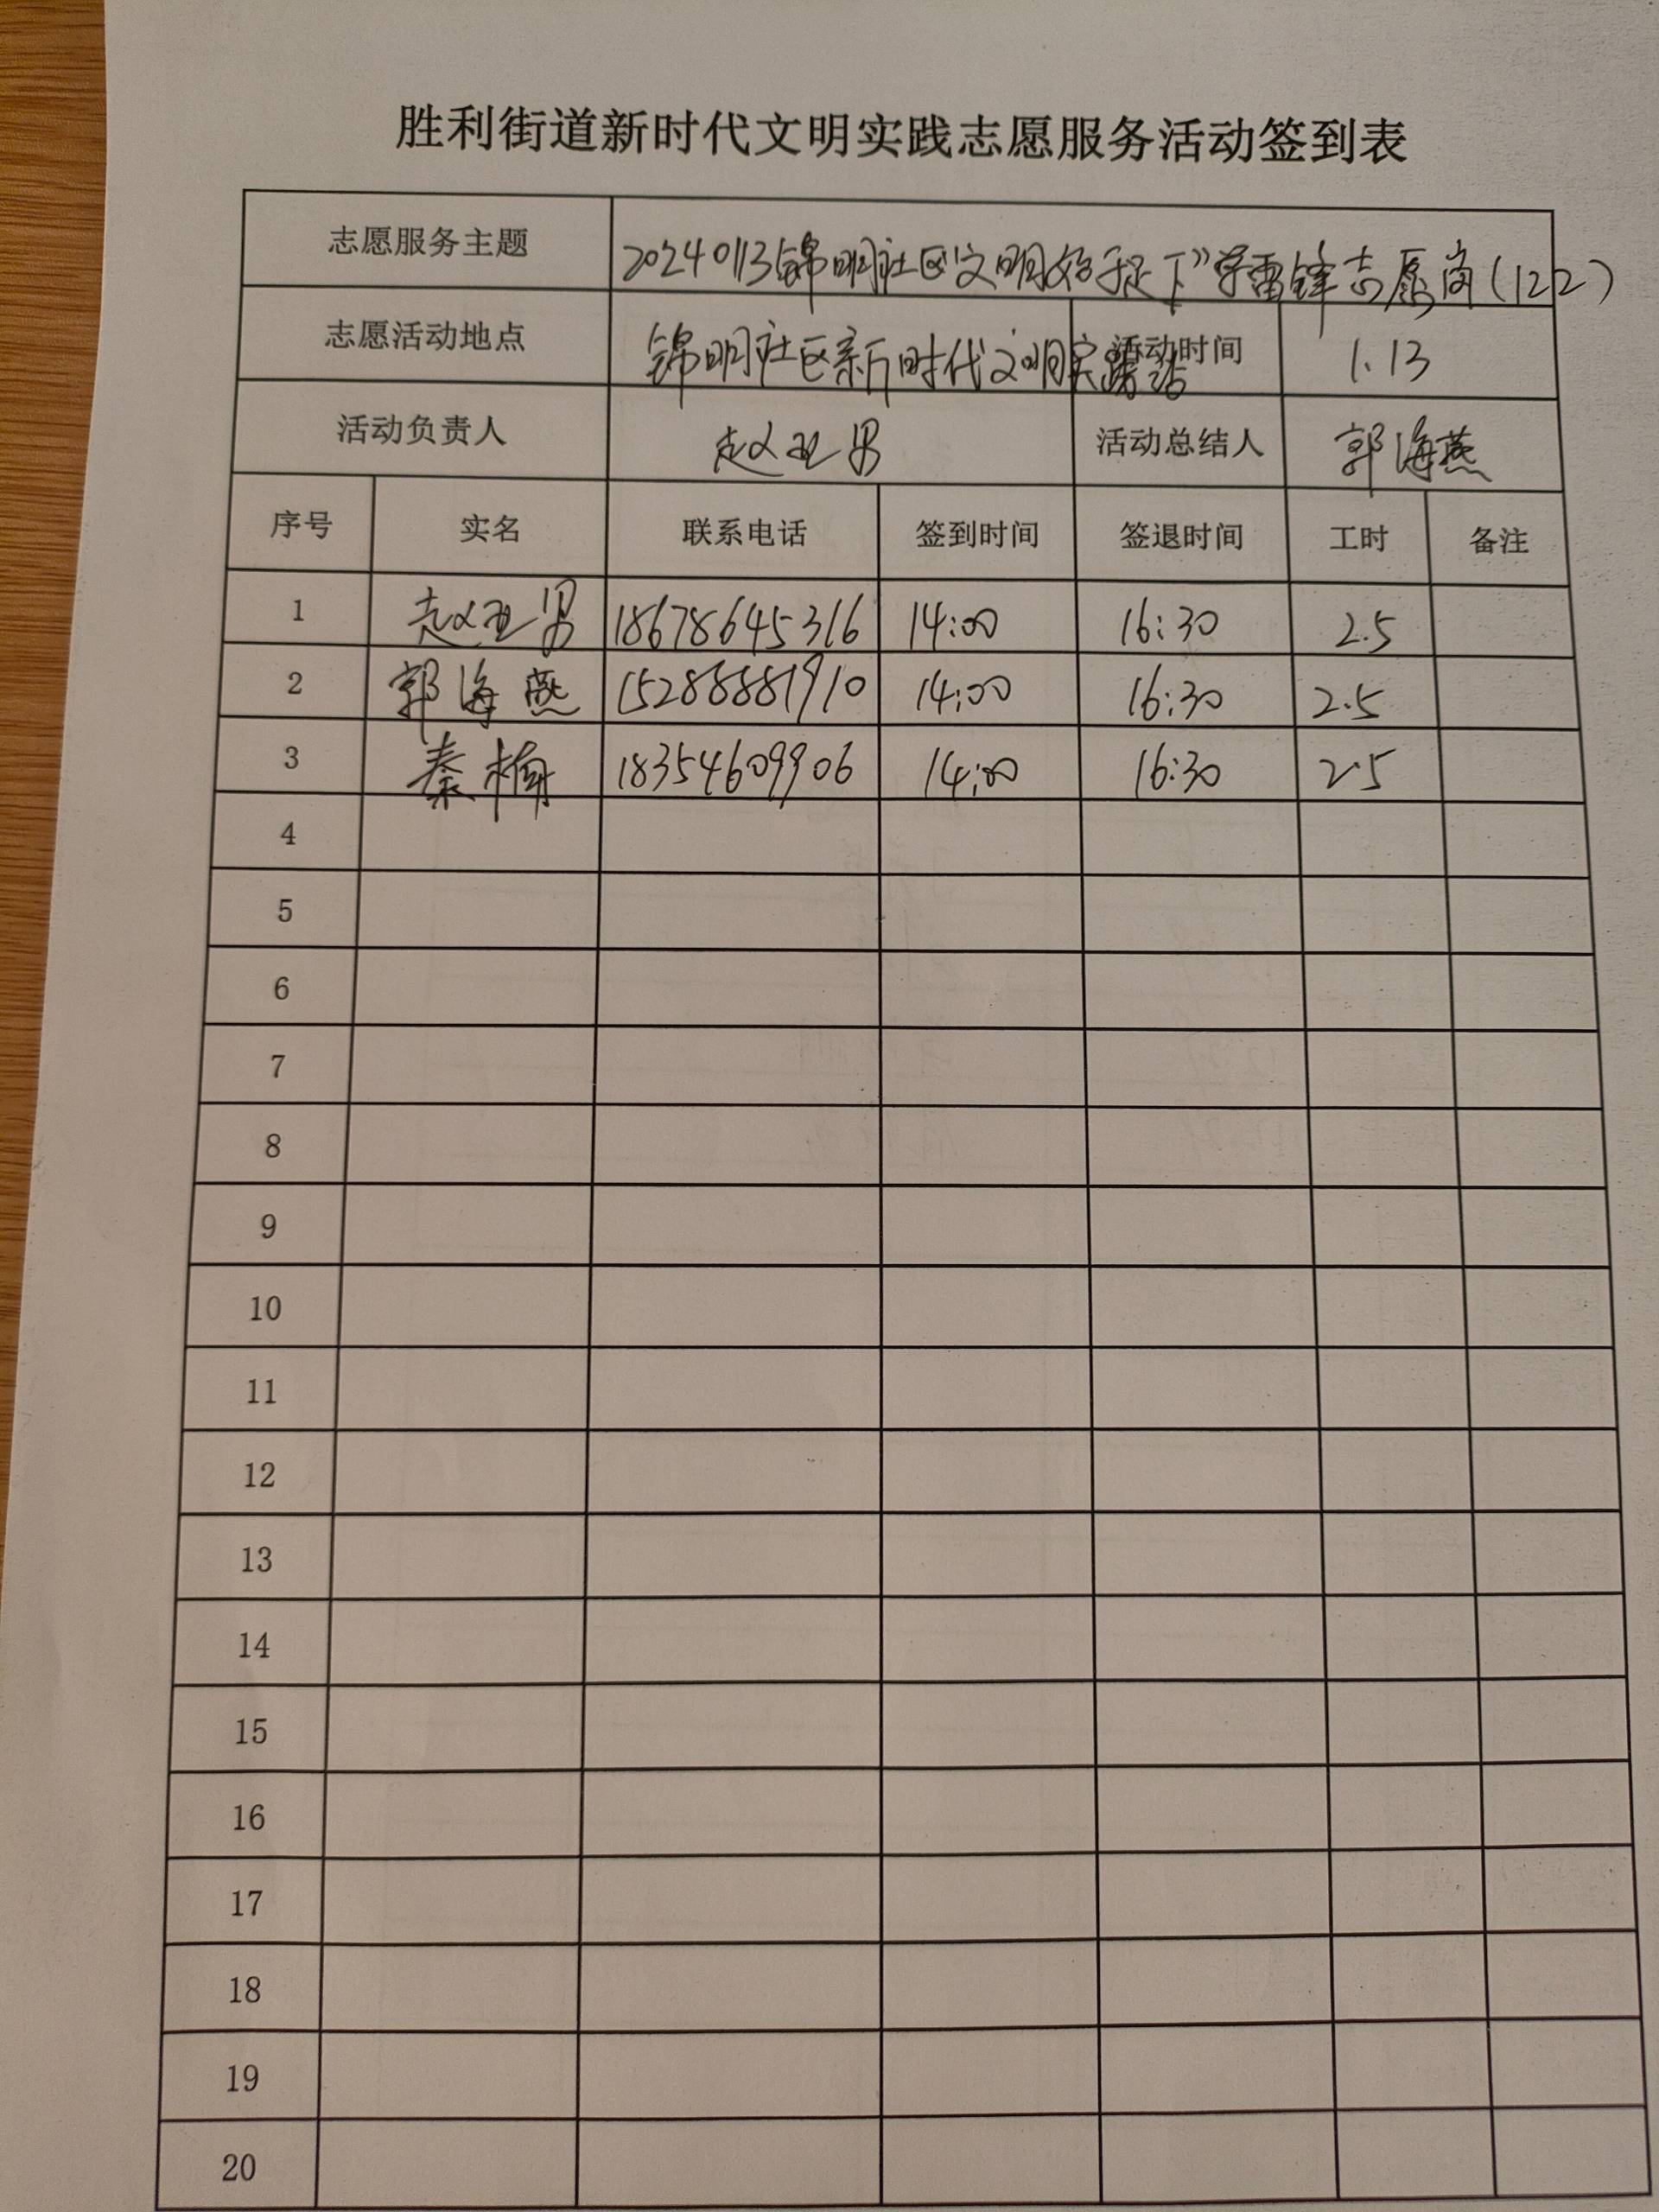 胜利街道新时代文明实践志愿服务活动签到表
志愿服务主题 20240113锦明社区文明始于足下”学雷锋志愿岗(122)
志愿活动地点 锦明社区新时代文明实践站 活动时间 1.13
活动负责人 赵亚男 活动总结人 郭海燕
序号 实名 联系电话 签到时间 签退时间 工时 备注
1 赵亚男 18678645316 14:00 16:30 2.5
2 郭海燕 15288881910 14:00 16:30 2.5
3 秦楠 18354609906 14:00 16:30 2.5
4
5
6
7
8
9
10
11
12
13
14
15
16
17
18
19
20